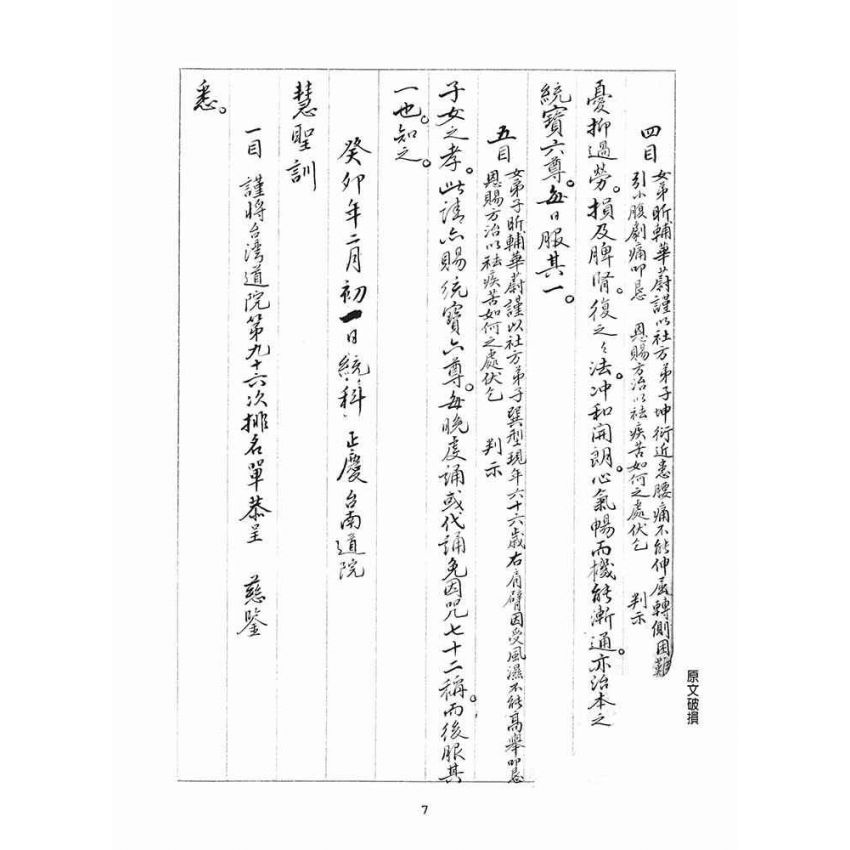 四目
女弟昕輔華蔚謹以社方弟子坤衍近患腰痛不能伸屈轉側困難
引小腹劇痛叩懇　恩賜方治以祛疾苦如何之處伏乞　判示
憂抑過勞。損及脾腎。復之之法。冲和開朗。心氣暢而機能漸通。亦治本之
統寶六尊。每日服其一。
五目
女弟子昕輔華蔚謹以社方弟子巽型現年六十六歲右肩臂因受風濕不能高舉叩懇
恩賜方治以祛疾苦如何之處伏乞　判示
子女之孝。此請亦賜統寶六尊。每晚虔誦或代誦免因咒七十二稱。而後服其
一也。知之。
癸卯年二月初一日統科　正慶台南道院
慧聖訓
一目　謹將台灣道院第九十六次排名單恭呈　慈鑒
悉。
原文破損
7